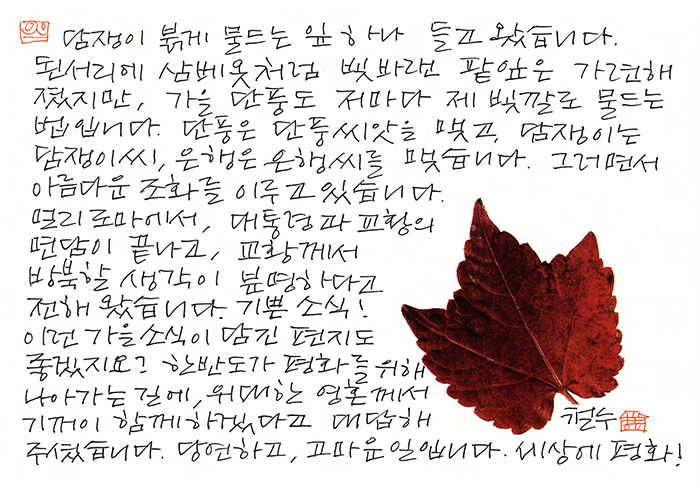 담쟁이 붉게 물드는 잎 하나 들고 왔습니다.
된서리에 삼베옷처럼 빛바랜 팥잎은 가련해
졌지만, 가을 단풍도 저마다 제 빛깔로 물드는
법입니다. 단풍은 단풍씨앗을 맺고, 담쟁이는
담쟁이씨, 은행은 은행씨를 맺습니다. 그러면서
아름다운 조화를 이루고 있습니다.
멀리 로마에서, 대통령과 교황의
면담이 끝나고, 교황께서
방북할 생각이 분명하다고
전해 왔습니다. 기쁜 소식!
이런 가을소식이 담긴 편지도
좋겠지요? 한반도가 평화를 위해
나아가는 길에, 위대한 영혼께서
기꺼이 함께하겠다고 대답해
주셨습니다. 당연하고, 고마운 일입니다. 세상에 평화!
철수